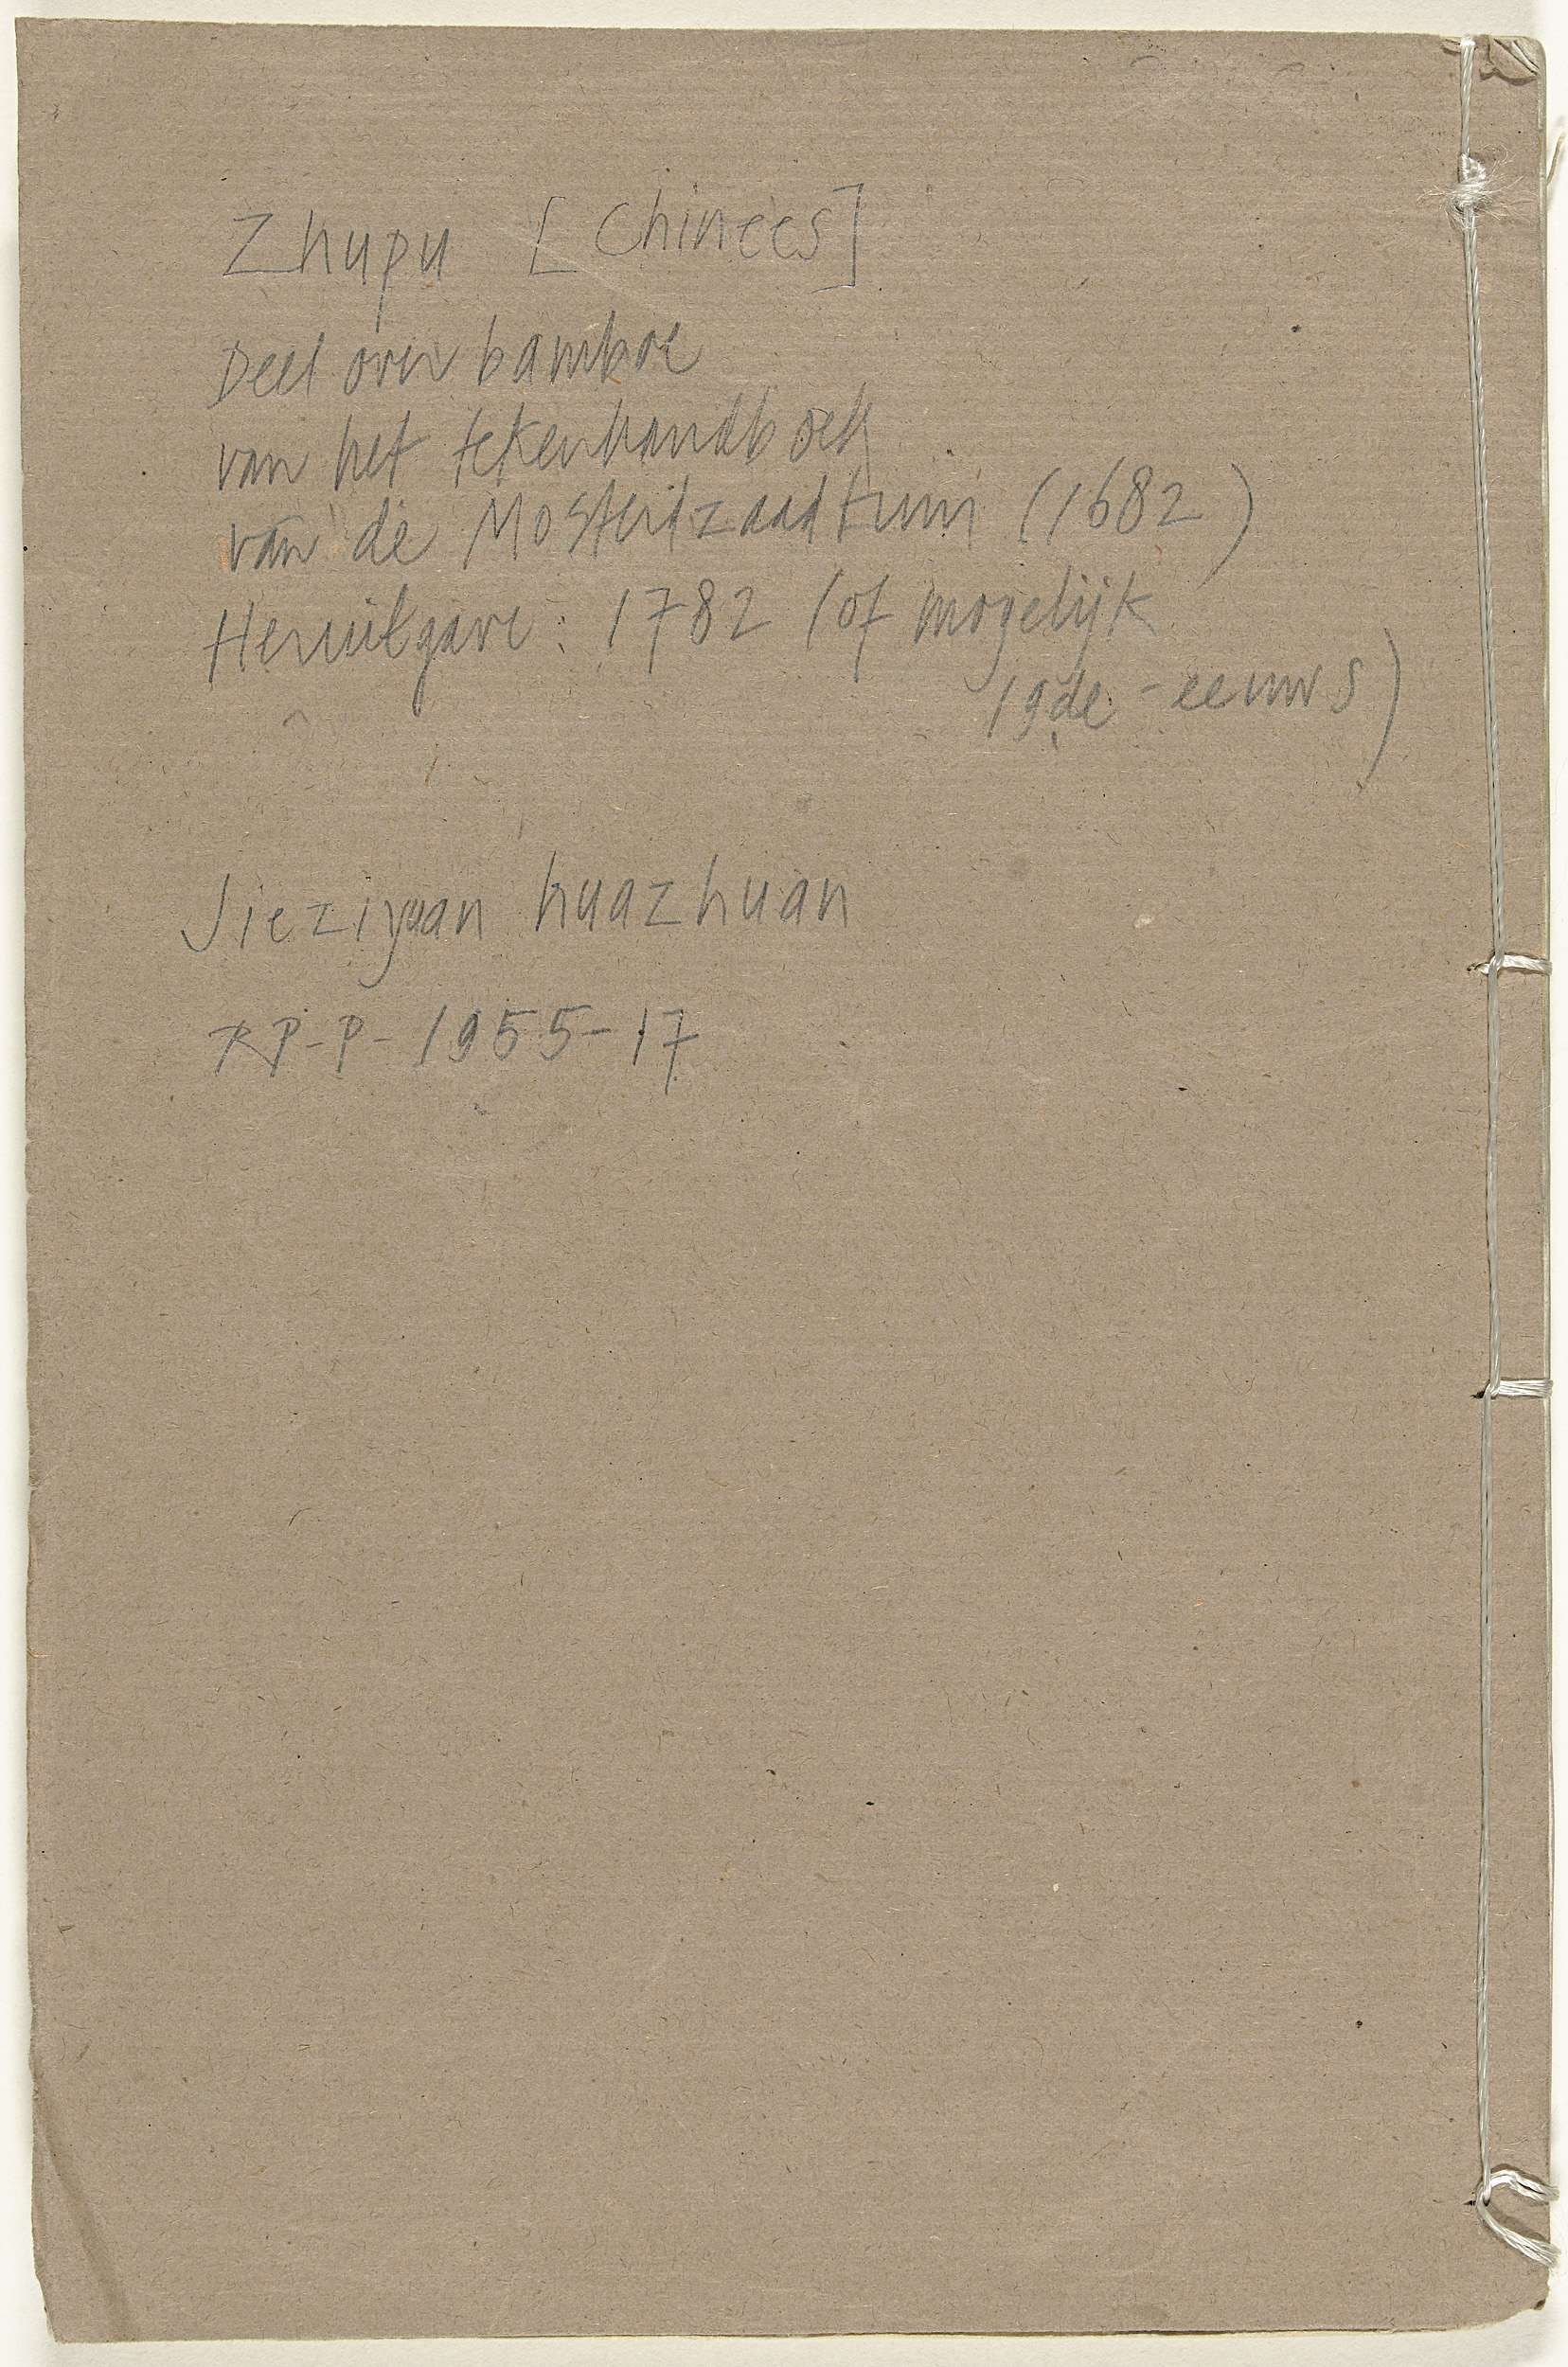 Zhupu [Chinees]
Deel over bamboe
van het tekenhandboek
van de Mosterdzaadtuin (1682)
Heruitgave: 1782 (of mogelijk
19de-eeuws)
Jieziyuan huazhuan
RP-P-1955-17